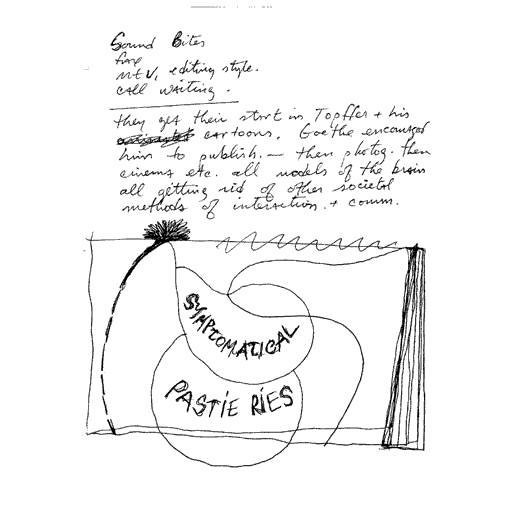 Sound Bites
fax
MTV, editing style.
call waiting.
they get their start in Topffer + his
cartoons. Goethe encouraged
him to publish. — then photog. then
cinema etc. all models of the brain
all getting rid of other societal
methods of interaction. + comm.
SYMPTOMATICAL
PASTIE RIES